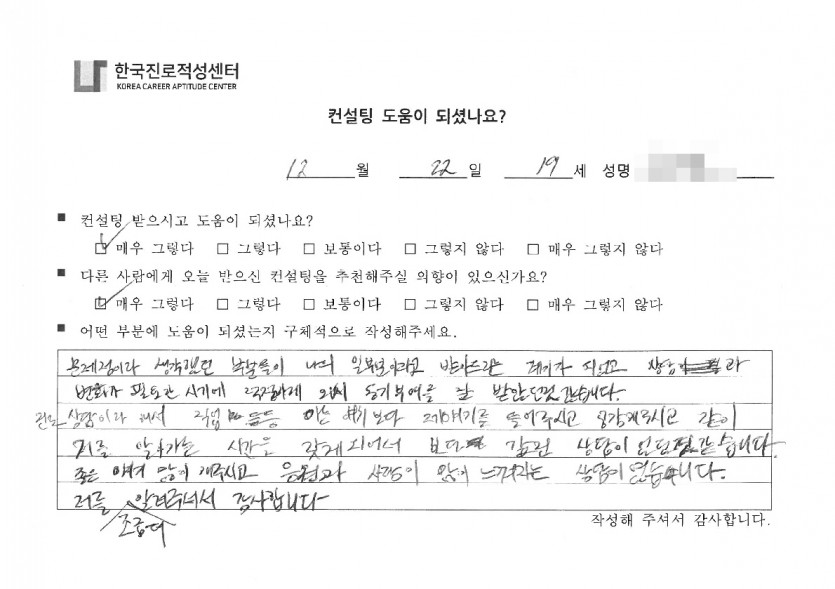 한국진로적성센터
KOREA CAREER APTITUDE CENTER
컨설팅 도움이 되셨나요?
12 월 22 일 19 세 성명
■ 컨설팅 받으시고 도움이 되셨나요?
□ 매우 그렇다 □ 그렇다 □ 보통이다 □ 그렇지 않다 □ 매우 그렇지 않다
■ 다른 사람에게 오늘 받으신 컨설팅을 추천해주실 의향이 있으신가요?
□ 매우 그렇다 □ 그렇다 □ 보통이다 □ 그렇지 않다 □ 매우 그렇지 않다
■ 어떤 부분에 도움이 되었는지 구체적으로 작성해주세요.
문제점이라 생각했던 나의 일부분이라고 받아드리는 계기가 되었고
변화가 필요한 시기에 동기부여를 잘 받았던것 같습니다.
진로 상담이라 해서 직업 보다 얘기를 들어주시고 생각해주시고 같이
저를 알아가는 시간을 갖게 되어서 보다 값진 상담이 었던것 같습니다.
좋은 많이 해주시고 응원과 사랑이 많이 느껴지는 상담이 었습니다.
저를 조금더 알려주셔서 감사합니다
작성해 주셔서 감사합니다.